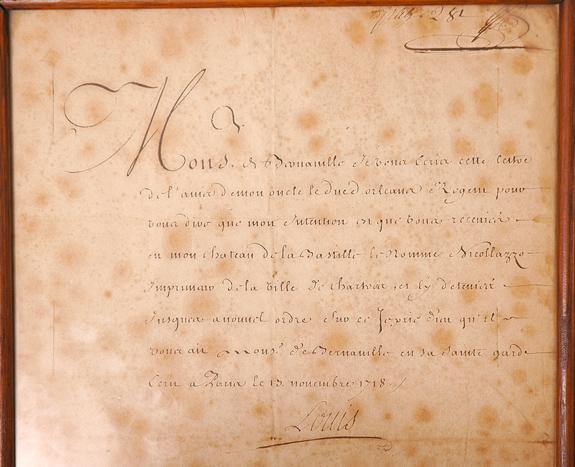 Mons. de Bernaville Je vous Ecris cette lettre
de l'avis de mon oncle le Duc d'orleans Regent pour
vous dire que mon Intention est que vous receviez
en mon chateau de la Bastille le Nommé Nicollazzo
Imprimeur de la ville de chartres et ly deteniez
Jusques a nouvel ordre Sur ce Je prie dieu qu'il
vous ait Mons. de Bernaville en sa sainte garde
Ecrit a Paris le 13 novembre 1718
Louis